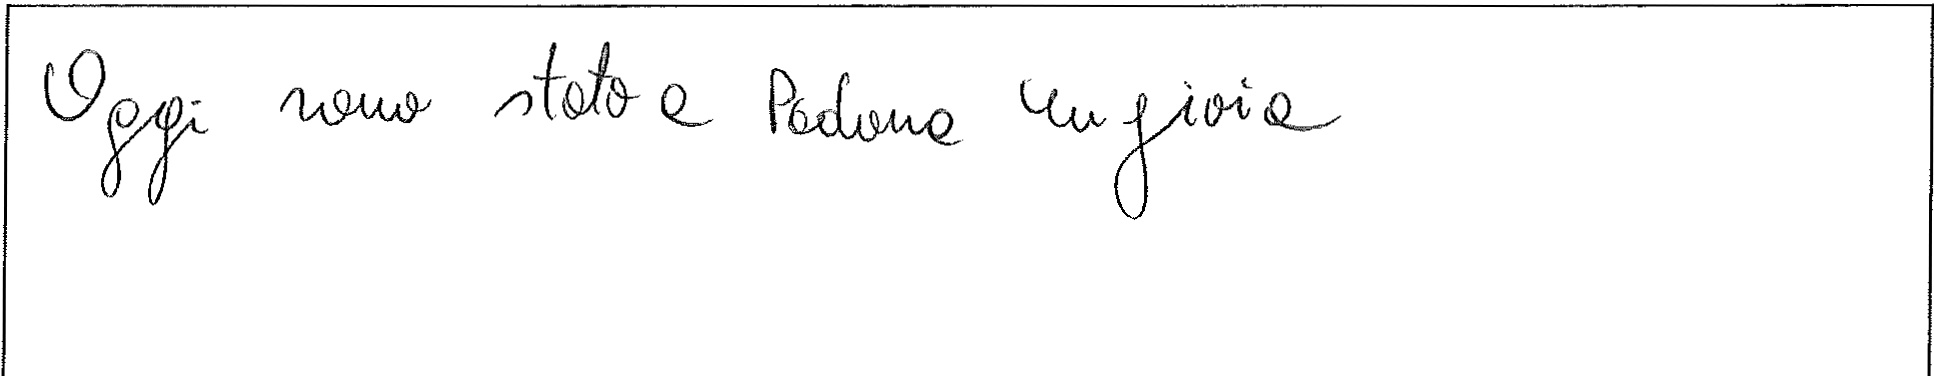 Oggi sono stato a Padova in gioia